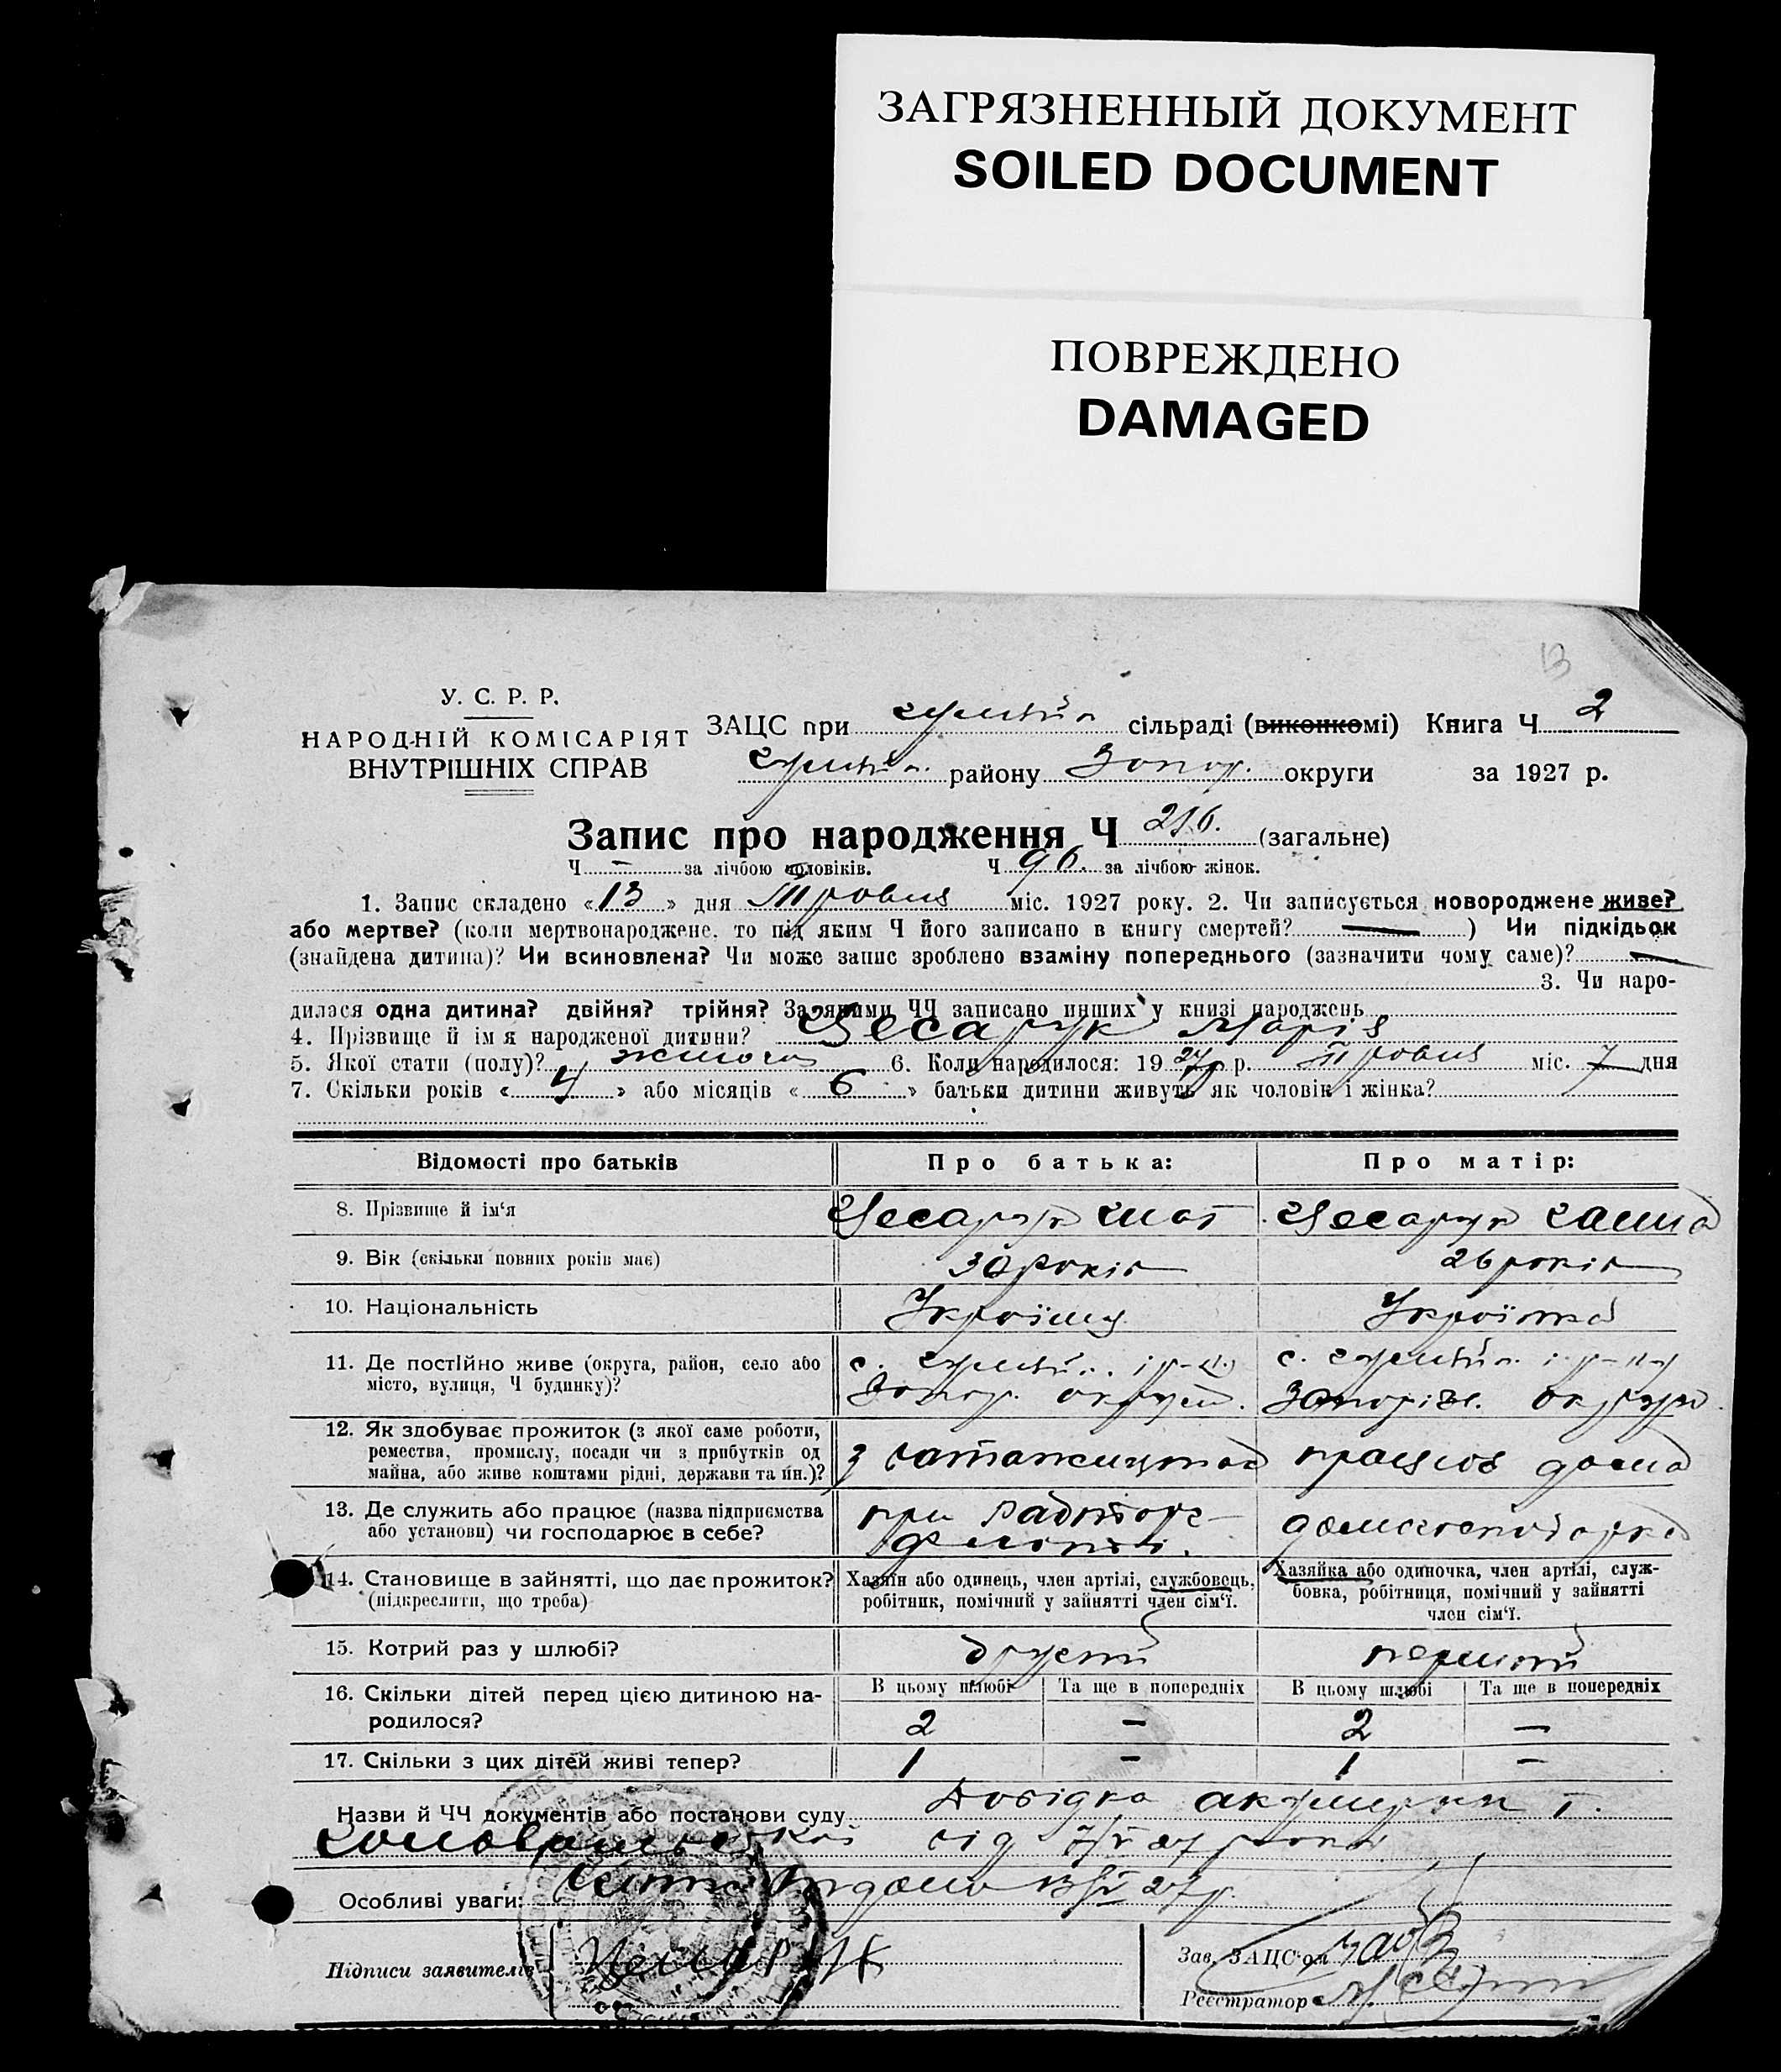 ЗАГРЯЗНЕННЫЙ ДОКУМЕНТ
SOILED DOCUMENT
ПОВРЕЖДЕНО
DAMAGED
13
У. С. Р. Р.
НАРОДНІЙ КОМІСАРІЯТ
ВНУТРІШНІХ СПРАВ
ЗАЦС при сільраді (виконкомі) Книга Ч 2
району Запор. округи за 1927 р.
Запис про народження Ч 216. (загальне)
Ч — за лічбою чоловіків. Ч 96. за лічбою жінок.
1. Запис складено «13» дня Травня міс. 1927 року. 2. Чи записується новороджене живе?
або мертве? (коли мертвонароджене, то під яким Ч його записано в книгу смертей? — ) Чи підкідьок
(знайдена дитина)? Чи всиновлена? Чи може запис зроблено взаміну попереднього (зазначити чому саме)? —
3. Чи наро-
дилася одна дитина? двійня? трійня? За якими ЧЧ записано инших у книзі народжень
4. Прізвище й ім'я народженої дитини? Цесарук Марія
5. Якої стати (полу)? жіноча 6. Коли народилося: 1927 р. Травня міс. 7 дня
7. Скільки років «4» або місяців «6» батьки дитини живуть як чоловік і жінка?
Відомості про батьків Про батька: Про матір:
8. Прізвище й ім'я Цесарук Цесарук Ганна
9. Вік (скільки повних років має) 30 років 26 років
10. Національність Українец Українка
11. Де постійно живе (округа, район, село або
місто, вулиця, Ч будинку)?
с. Запор. округи. с. Запоріз. округи.
12. Як здобуває прожиток (з якої саме роботи,
ремества, промислу, посади чи з прибутків од
майна, або живе коштами рідні, держави та ин.)?
з працює дома
13. Де служить або працює (назва підприємства
або установи) чи господарює в себе?
при домогосподарка
14. Становище в зайнятті, що дає прожиток?
(підкреслити, що треба)
Хазяїн або одинець, член артілі, службовець,
робітник, помічний у зайнятті член сім'ї.
Хазяйка або одиночка, член артілі, служ-
бовка, робітниця, помічний у зайнятті
член сім'ї.
15. Котрий раз у шлюбі? другий перший
16. Скільки дітей перед цією дитиною на-
родилося?
В цьому шлюбі Та ще в попередніх В цьому шлюбі Та ще в попередніх
2 — 2 —
17. Скільки з цих дітей живі тепер? 1 — 1 —
Назви й ЧЧ документів або постанови суду Довідка акушерки
від 7/V 27 року
Особливі уваги: видано 13/V 27 р.
Підписи заявителів Цесарук
Зав. ЗАЦС'ом
Реєстратор